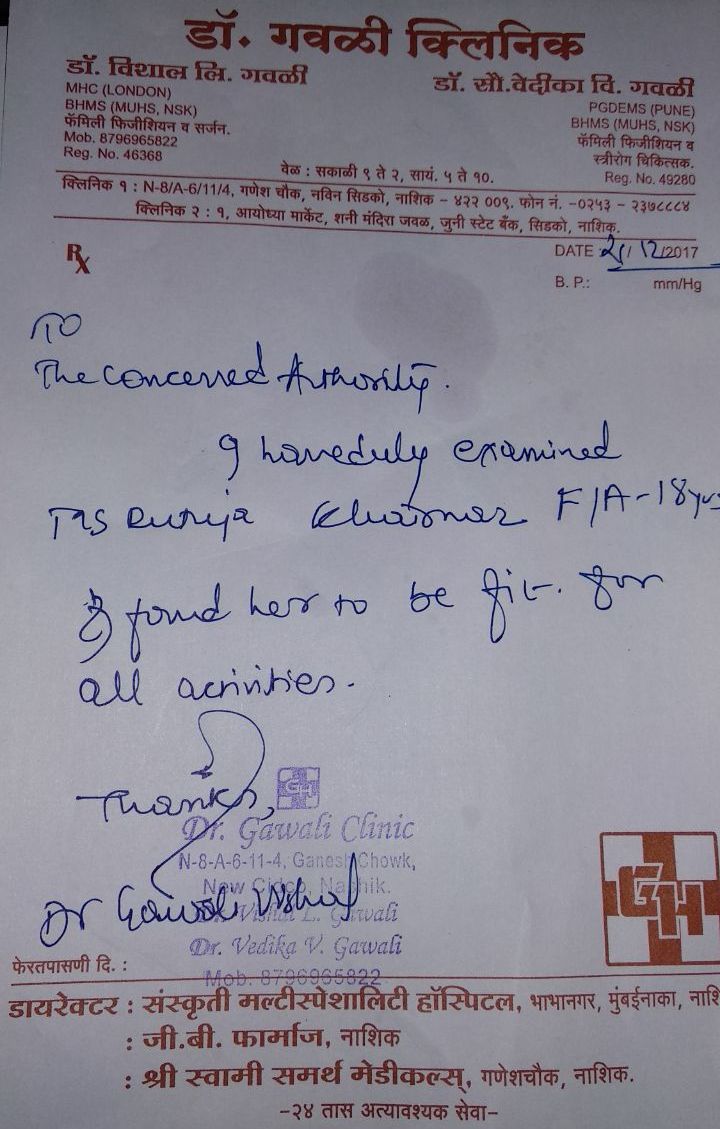 डॉ. गवळी क्लिनिक
डॉ. विशाल लि. गवळी
MHC (LONDON)
BHMS (MUHS, NSK)
फॅमिली फिजीशियन व सर्जन.
Mob. 8796965822
Reg. No. 46368
डॉ. सौ.वेदीका वि. गवळी
PGDEMS (PUNE)
BHMS (MUHS, NSK)
फॅमिली फिजीशियन व
स्त्रीरोग चिकित्सक.
Reg. No. 49280
वेळ : सकाळी ९ ते २, सायं. ५ ते १०.
क्लिनिक १ : N-8/A-6/11/4, गणेश चौक, नविन सिडको, नाशिक - ४२२ ००९. फोन नं. -०२५३ - २३७८८८४
क्लिनिक २ : १, आयोध्या मार्केट, शनी मंदिरा जवळ, जुनी स्टेट बँक, सिडको, नाशिक.
Rx
DATE : /12/2017
B. P.: mm/Hg
TO
The concerned Authority.
I have duly examined
Khairnar F/A-18yrs
& found her to be fit. for
all activities.
Thanks,
GH
Dr. Gawali Clinic
N-8-A-6-11-4, Ganesh Chowk,
New Cidco, Nashik.
Dr. Vishal L. Gawali
Dr. Vedika V. Gawali
Mob. 8796965822
Dr Gawali Vishal
GH
फेरतपासणी दि. :
डायरेक्टर : संस्कृती मल्टीस्पेशालिटी हॉस्पिटल, भाभानगर, मुंबईनाका, नाशि
: जी.बी. फार्माज, नाशिक
: श्री स्वामी समर्थ मेडीकल्स्, गणेशचौक, नाशिक.
-२४ तास अत्यावश्यक सेवा-